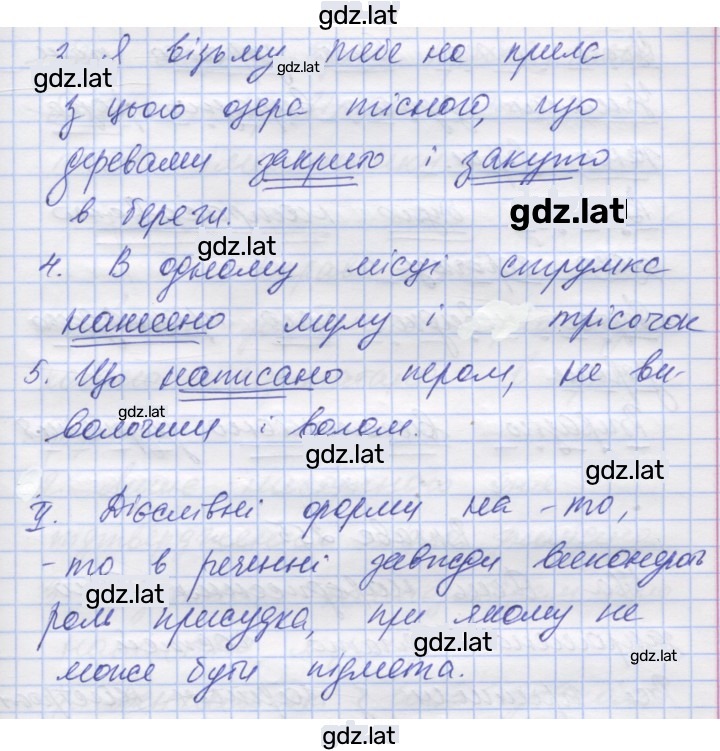 gdz.lat
2. Я візьму тебе на прилс
gdz.lat gdz.lat
з цього озера тісного, що
деревами закрито і закуто
в береги.
gdz.lat
gdz.lat
4. В одному місці струмкс
нанесено мулу і трісочок
5. Що написано пером, не ви-
gdz.lat
волочиш і волом.
gdz.lat
gdz.lat
ІІ. Дієслівні форми на -но,
-то в реченні завжди виконують
gdz.lat
роль присудка, при якому не
gdz.lat
може бути підмета.
gdz.lat
gdz.lat